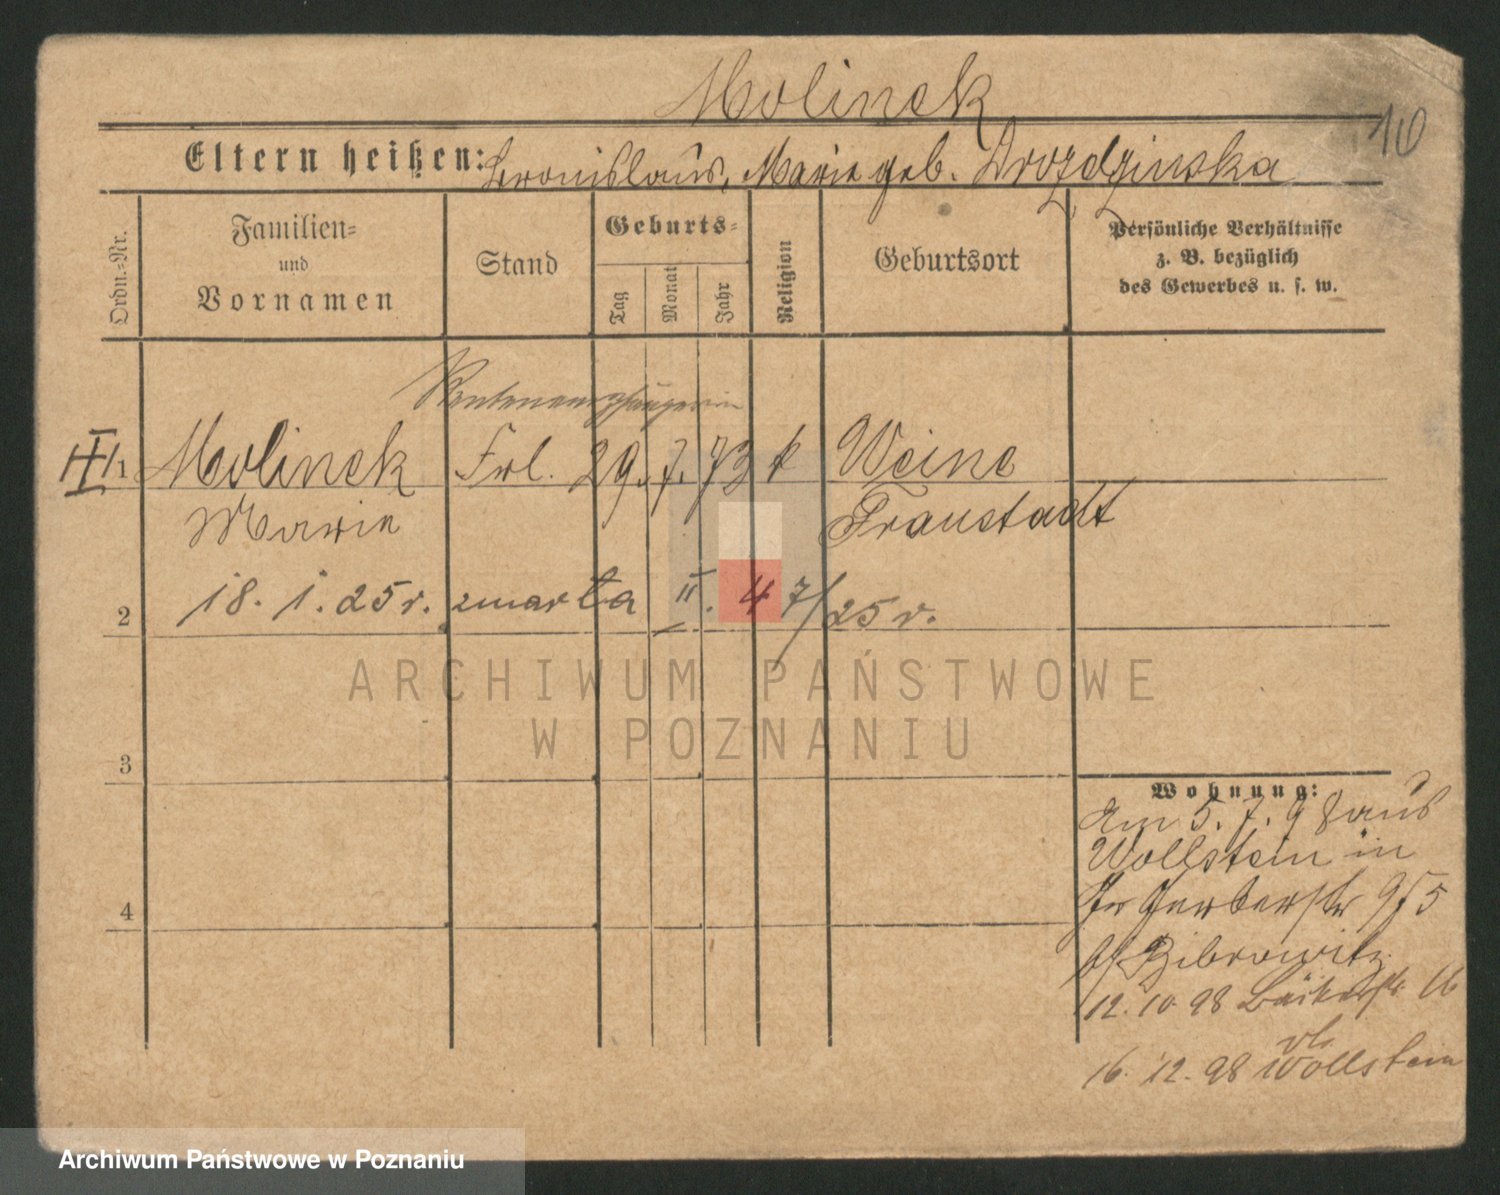 Molinek
10
Eltern heißen: Bronislaus, Marie geb. Drozdzinska
Ordn.-Nr.
Familien-
und
Vornamen
Stand
Geburts-
Tag
Monat
Jahr
Religion
Geburtsort
Persönliche Verhältnisse
z. B. bezüglich
des Gewerbes u. s. w.
Rentenempfängerin
1 Molinek Frl. 29. 7. 73 k Weine
Marie Fraustadt
2 18. 1. 25 r. zmarła II. 47/25 r.
3
4
Wohnung:
Am 5. 7. 98 aus
Wollstein in
Gerberstr 9/5
b/ Zibrowitz
12. 10. 98 Bäckerstr. 16
16. 12. 98 Wollstein
ARCHIWUM PAŃSTWOWE
W POZNANIU
Archiwum Państwowe w Poznaniu